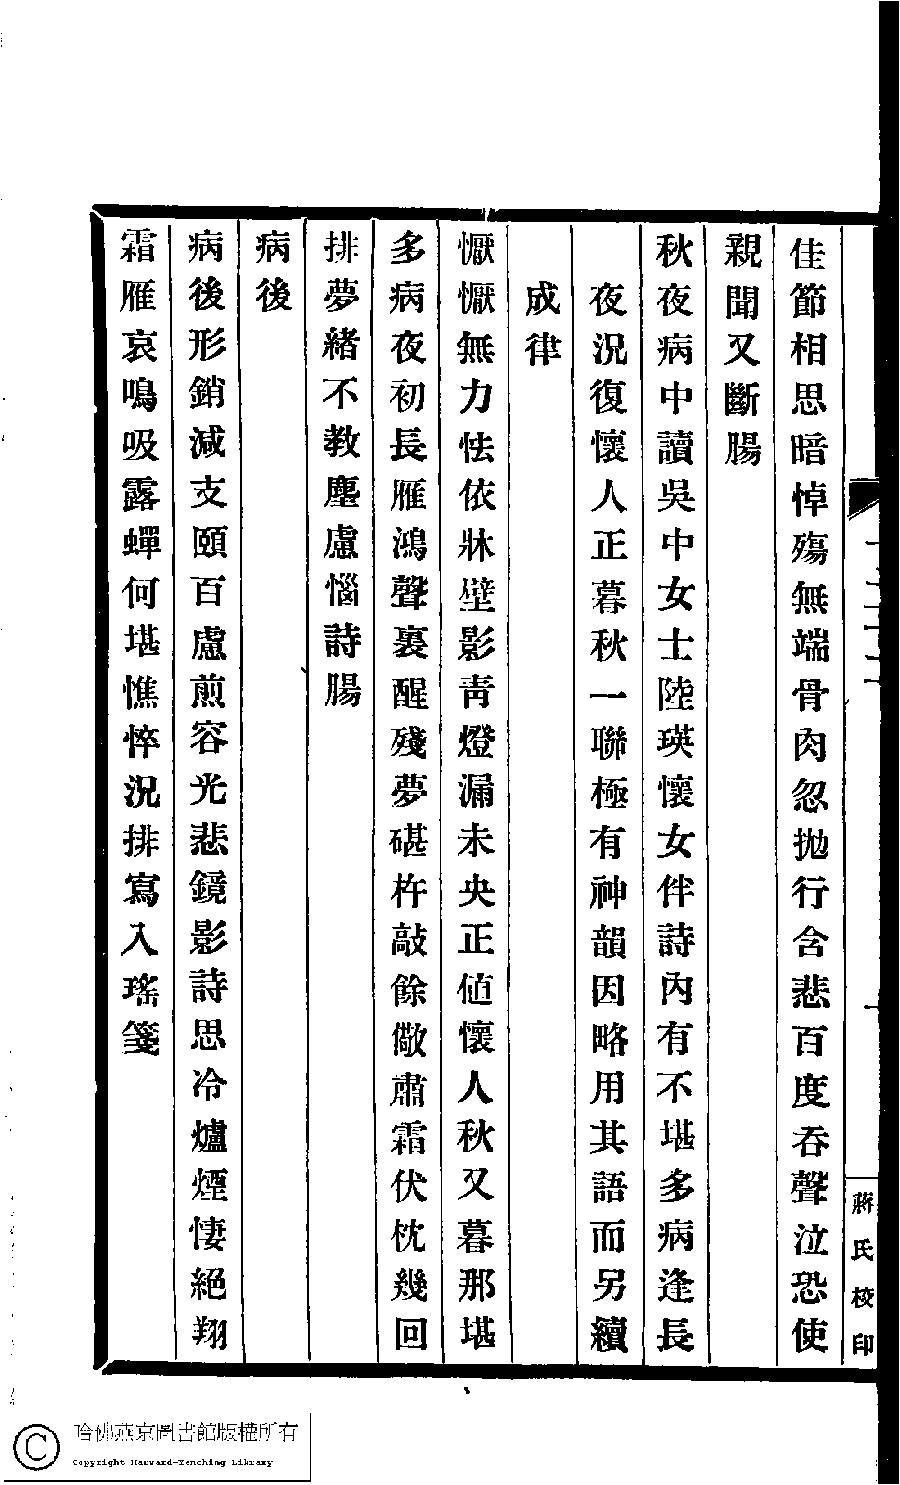 佳節相思暗悼殤無端骨肉忽拋行含悲百度吞聲泣恐使
親聞又斷腸
秋夜病中讀吳中女士陸瑛懷女伴詩內有不堪多病逢長
夜況復懷人正暮秋一聯極有神韻因略用其語而另續
成律
懨懨無力怯依牀壁影靑燈漏未央正値懷人秋又暮那堪
多病夜初長雁鴻聲裏醒殘夢碪杵敲餘儆肅霜伏枕幾回
排夢緒不教塵慮惱詩腸
病後
病後形銷減支頤百慮煎容光悲鏡影詩思冷爐煙悽絕翔
霜雁哀鳴吸露蟬何堪憔悴況排寫入瑤箋
蔣氏校印
哈佛燕京圖書館版權所有
Copyright Harvard-Yenching Library